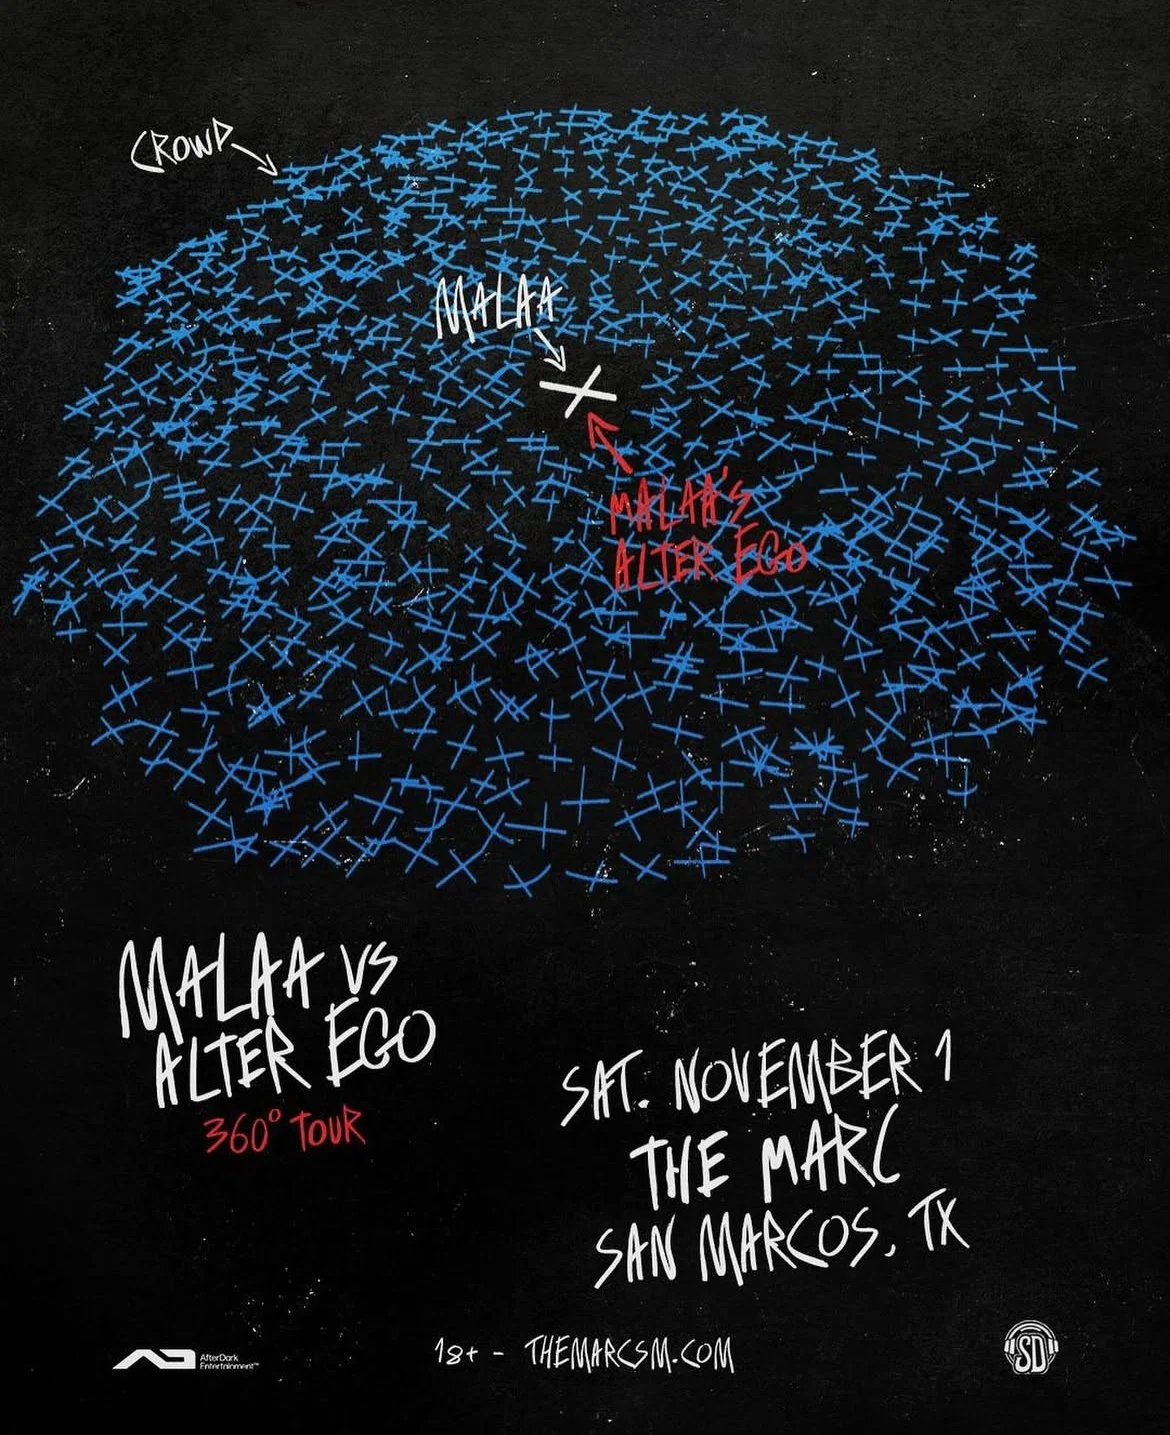 CROWD
MALAA
MALAA'S
ALTER EGO
MALAA VS
ALTER EGO
360° TOUR
SAT. NOVEMBER 1
THE MARC
SAN MARCOS, TX
AfterDark
Entertainment™
18+ - THEMARCSM.COM
SD